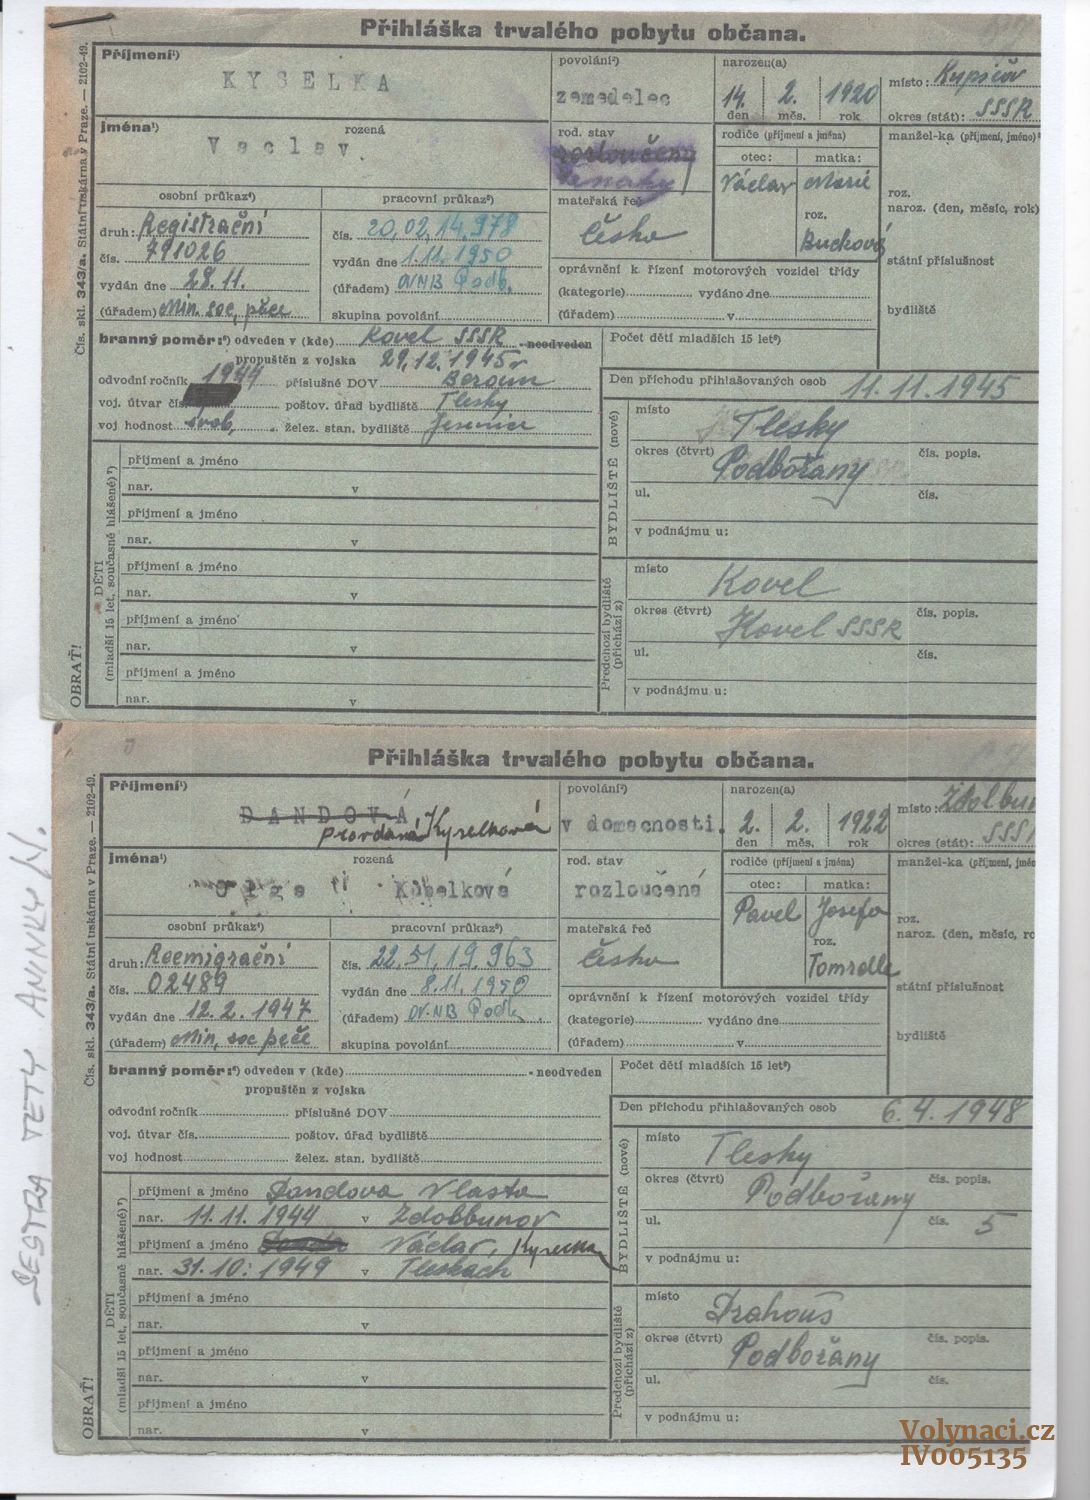 Přihláška trvalého pobytu občana.
Příjmení¹)
KYSELKA
povolání²)
zemedelec
narozen(a)
14. 2. 1920
den měs. rok
místo: Kupičov
okres (stát): SSSR
jména¹) rozená
Vaclav.
rod. stav
rozloučený
rodiče (příjmení a jména)
otec: matka:
Václav Marie
roz.
Bucková
manžel-ka (příjmení, jméno)³
roz.
naroz. (den, měsíc, rok)
státní příslušnost
bydliště
osobní průkaz⁴)
druh: Registrační
čís. 791026
vydán dne 28.11.
(úřadem) Min. soc. péče
pracovní průkaz⁵)
čís. 20,02,14,978
vydán dne 1.11.1950
(úřadem) ONV Podb.
skupina povolání
mateřská řeč
česka
oprávnění k řízení motorových vozidel třídy
(kategorie) vydáno dne
(úřadem) v
branný poměr:⁶) odveden v (kde) Kovel SSSR - neodveden
propuštěn z vojska 29.12.1945
odvodní ročník 1944 příslušné DOV Beroun
voj. útvar čís. poštov. úřad bydliště Tlesky
voj hodnost svob. želez. stan. bydliště Jesenice
Počet dětí mladších 15 let⁸)
Den příchodu přihlašovaných osob 11.11.1945
BYDLIŠTĚ (nové)
místo Tlesky
okres (čtvrt) Podbořany čís. popis.
ul. čís.
v podnájmu u:
Předchozí bydliště (přichází z)
místo Kovel
okres (čtvrt) Kovel SSSR čís. popis.
ul. čís.
v podnájmu u:
DĚTI (mladší 15 let, současně hlášené)⁷)
příjmení a jméno
nar. v
příjmení a jméno
nar. v
příjmení a jméno
nar. v
příjmení a jméno
nar. v
příjmení a jméno
nar. v
OBRAŤ!
Čís. skl. 343/a. Státní tiskárna v Praze. — 2102-49.
Přihláška trvalého pobytu občana.
Příjmení¹)
DANDOVÁ
provdaná Kyselková
povolání²)
v domacnosti.
narozen(a)
2. 2. 1922
den měs. rok
místo: Zdolbun
okres (stát): SSS
jména¹) rozená
Olga Kobelková
rod. stav
rozloučená
rodiče (příjmení a jména)
otec: matka:
Pavel Josefa
roz.
Tomrdle
manžel-ka (příjmení, jméno
roz.
naroz. (den, měsíc, ro
státní příslušnost
bydliště
osobní průkaz⁴)
druh: Reemigrační
čís. 02489
vydán dne 12.2.1947
(úřadem) Min. soc péče
pracovní průkaz⁵)
čís. 22,51,19,963
vydán dne 8.11.1950
(úřadem) ONV Podb.
skupina povolání
mateřská řeč
česka
oprávnění k řízení motorových vozidel třídy
(kategorie) vydáno dne
(úřadem) v
branný poměr:⁶) odveden v (kde) - neodveden
propuštěn z vojska
odvodní ročník příslušné DOV
voj. útvar čís. poštov. úřad bydliště
voj hodnost želez. stan. bydliště
Počet dětí mladších 15 let⁸)
Den příchodu přihlašovaných osob 6.4.1948
BYDLIŠTĚ (nové)
místo Tlesky
okres (čtvrt) Podbořany čís. popis.
ul. čís. 5
v podnájmu u:
Předchozí bydliště (přichází z)
místo Drahouš
okres (čtvrt) Podbořany čís. popis.
ul. čís.
v podnájmu u:
DĚTI (mladší 15 let, současně hlášené)⁷)
příjmení a jméno Dandova Vlasta
nar. 11.11.1944 v Zdolbunov
příjmení a jméno Václav, Kyselka
nar. 31.10.1949 v Tleskach
příjmení a jméno
nar. v
příjmení a jméno
nar. v
příjmení a jméno
nar. v
OBRAŤ!
Čís. skl. 343/a. Státní tiskárna v Praze. — 2102-49.
SESTRA TETY ANINKY W.
Volynaci.cz
IV005135